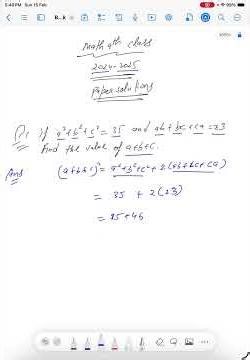 5:40 PM Sun 15 Feb
90%
Math 9th class
2024-2025
Paper solutions
Q: If a²+b²+c² = 35 and ab+bc+ca = 23
find the value of a+b+c.
Ans (a+b+c)² = a²+b²+c²+2(ab+bc+ca)
= 35 + 2(23)
= 35+46